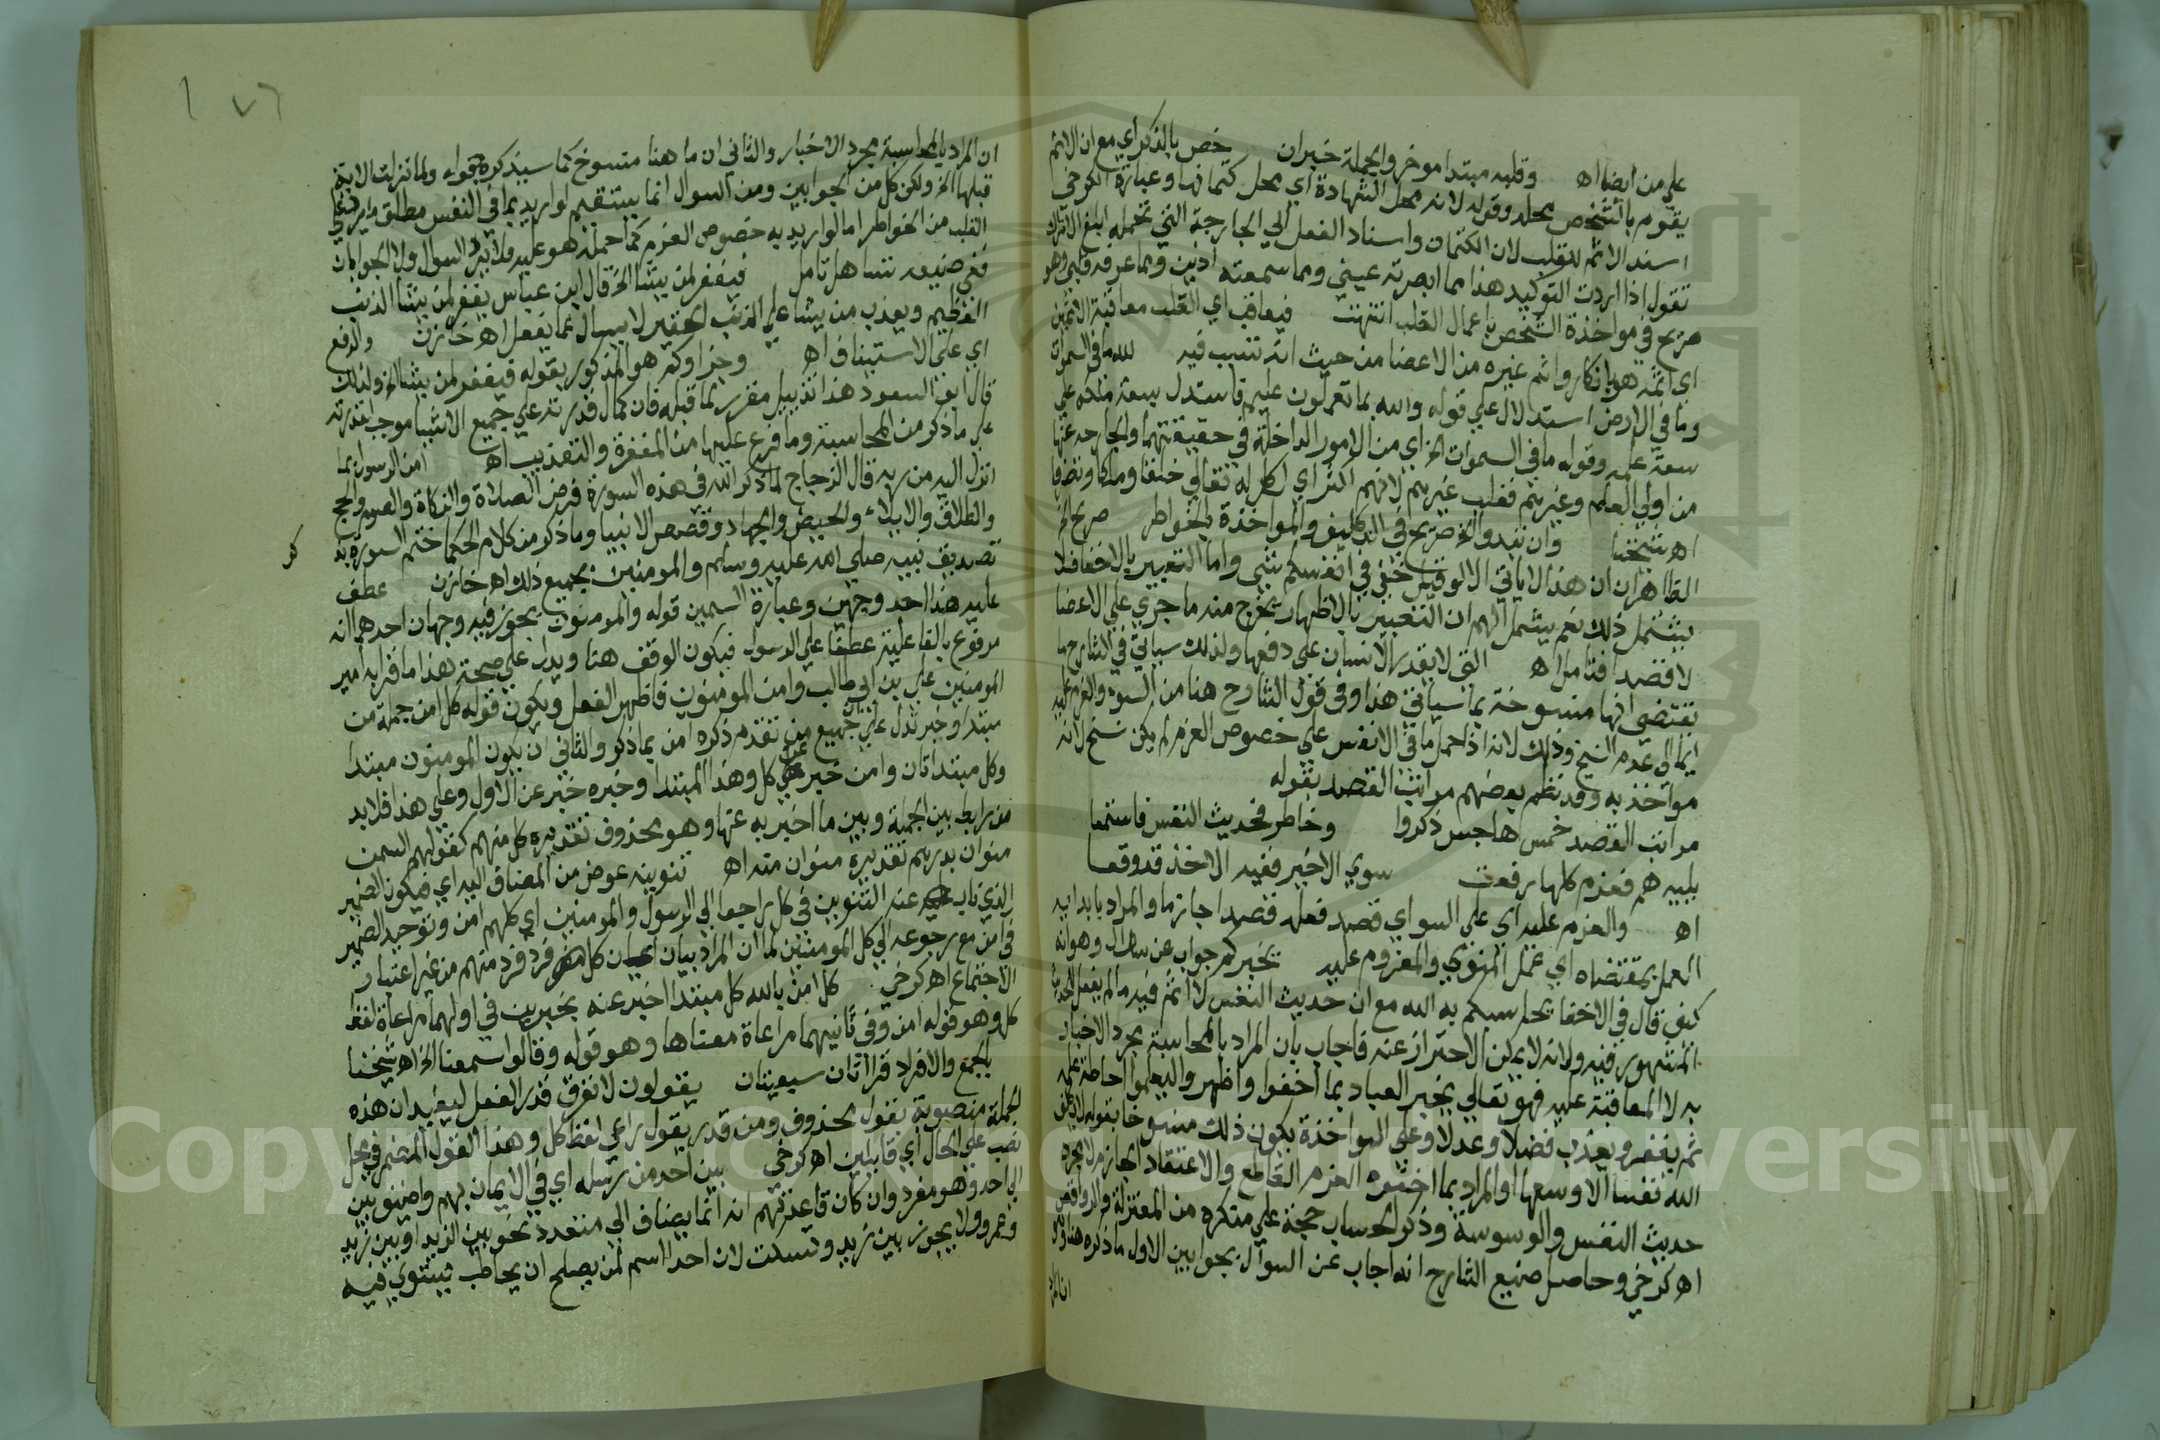 علي من ايضا اه وقلبه مبتدا موخر والجملة خبران خص بالذكر اي مع ان الاثم
يقوم بالشخص بحمله وقوله لانه محل الشهادة اي محل كتمانها وعبارة الكرخي
اسند الاثم للقلب لان الكتمان واسناد الفعل الي الجارحة التي تعمله ابلغ الاتراك
تقول اذا اردت التوكيد هذا مما ابصرته عيني ومما سمعته اذني ومما عرفه قلبي وهو
صريح في مواخذة الشخص باعمال القلب انتهت فيعاقب اي القلب معاقبة الاثمين
اي اثمه هو بانكار واثم غيره من الاعضا من حيث انه تسبب فيه لله ما في السموات
وما في الارض استدلال علي قوله والله بما تعملون عليم فاستدل بسعة ملكه علي
سعة علمه وقوله ما في السموات الخ اي من الامور الداخلة في حقيقتهما والخارجه عنها
من اولي العلم وغيرهم فغلب غيرهم لانهم اكثر اي الكل له تعالي خلقا وملكا وتصرفا
اه شيخنا وان تبدوا الخ صريح في التكليف والمواخذة بالخواطر صريح الخ
الظاهر ان هذا لا ياتي الا لو قيل خفي في انفسكم شي واما التعبير بالاخفا فلا
يشتمل ذلك نعم يشمل الهم ان التعبير بالاظهار يخرج منه ما جري علي الاعضا
لا قصدا فتامل اه التي لا يقدر الانسان علي دفعها ولذلك سياتي في الشارح ما
يقتضي انها منسوخة بما سياتي هذا وفي قول الشارح هنا من السوء والعزم عليه
ايما الي عدم النسخ وذلك لانه اذا حمل ما في الانفس علي خصوص العزم لم يكن نسخ لانه
مواخذ به وقد نظم بعضهم مراتب القصد بقوله
مراتب القصد خمس هاجس ذكروا وخاطر فحديث النفس فاستمعا
يليه هم فعزم كلها رفعت سوي الاخير ففيه الاخذ قد وقعا
اه والعزم عليه اي علي السو اي قصد فعله قصدا جازما والمراد بابدايه
العمل بمقتضاه اي عمل المنوي والمعزوم عليه يخبركم جواب عن سوال وهو انه
كيف قال في الاخفا يحاسبكم به الله مع ان حديث النفس لا اثم فيه ما لم يفعل للحديث
المشهور فيه ولانه لا يمكن الاحتراز عنه فاجاب بان المراد بالمحاسبة مجرد الاخبار
به لا المعاقبة عليه فهو تعالي يخبر العباد بما اخفوا واظهروا ليعلموا احاطة علمه
ثم يغفر ويعذب فضلا وعدلا وعلي المواخذة يكون ذلك منسوخا بقوله لا يكلف
الله نفسا الا وسعها او المراد بما اخفوه العزم القاطع والاعتقاد الجازم لا مجرد
حديث النفس والوسوسة وذكر الحساب حجة علي منكره من المعتزلة والروافض
اه كرخي وحاصل صنيع الشارح انه اجاب عن السوال بجوابين الاول ما ذكره هنا وهو
ان المراد
١٧٦
ان المراد بالمحاسبة مجرد الاخبار والثاني ان ما هنا منسوخ كما سيذكره بقوله ولما نزلت الاية
قبلها الخ ولكن كل من الجوابين ومن السوال انما يستقيم لو اريد بما في النفس مطلق ما يرد علي
القلب من الخواطر اما لو اريد به خصوص العزم كما حمله هو عليه فلا يرد السوال ولا الجوابان
ففي صنيعه تساهل تامل فيغفر لمن يشا الخ قال ابن عباس يغفر لمن يشا الذنب
العظيم ويعذب من يشا علي الذنب الحقير لا يسال عما يفعل اه خازن والرفع
اي علي الاستيناف اه وجزاوكم هو المذكور بقوله فيغفر لمن يشا الخ ولذلك
قال ابو السعود هذا تذييل مقرر لما قبله فان كمال قدرته علي جميع الاشيا موجب لقدرته
علي ما ذكر من المحاسبة وما فرع عليها من المغفرة والتعذيب اه امن الرسول بما
انزل اليه من ربه قال الزجاج لما ذكر الله في هذه السورة فرض الصلاة والزكاة والصوم والحج
والطلاق والايلاء والحيض والجهاد وقصص الانبيا وما ذكر من كلام الحكما ختم السورة بذكر
تصديق نبيه صلي الله عليه وسلم والمومنين بجميع ذلك اه خازن عطف
عليه هذا احد وجهين وعبارة السمين قوله والمومنون يجوز فيه وجهان احدهما انه
مرفوع بالفاعلية عطفا علي الرسول فيكون الوقف هنا ويدل علي صحة هذا ما قرا به امير
المومنين علي بن ابي طالب وامن المومنون فاظهر الفعل ويكون قوله كل امن جملة من
مبتدا وخبر تدل علي ان جميع من تقدم ذكره امن بما ذكر والثاني ان يكون المومنون مبتدا
وكل مبتدا ثان وامن خبر عن كل وهذا المبتدا وخبره خبر عن الاول وعلي هذا فلا بد
من رابط بين الجملة وبين ما اخبر به عنها وهو محذوف تقديره كل منهم كقولهم السمن
منوان بدرهم تقديره منوان منه اه تنوينه عوض من المضاف اليه اي فيكون الضمير
الذي ناب عنه التنوين في كل راجعا الي الرسول والمومنين اي كلهم امن وتوحيد الضمير
في امن مع رجوعه الي كل المومنين لما ان المراد بيان ايمان كل فرد فرد منهم من غير اعتبار
الاجتماع اه كرخي كل امن بالله كل مبتدا اخبر عنه بخبرين في اولهما مراعاة لفظ
كل وهو قوله امن وفي ثانيهما مراعاة معناها وهو قوله وقالوا سمعنا الخ اه شيخنا
بالجمع والافراد قراتان سبعيتان يقولون لا نفرق قدر الفعل ليفيد ان هذه
الجملة منصوبة بقول محذوف ومن قدر يقول راعي لفظ كل وهذا القول المضمر في محل
نصب علي الحال اي قايلين اه كرخي بين احد من رسله اي في الايمان بهم واضيف بين
الي احد وهو مفرد وان كان قاعدتهم انه انما يضاف الي متعدد نحو بين الزيدين او بين زيد
وعمرو ولا يجوز بين زيد وتسكت لان احدا اسم لمن يصلح ان يخاطب يستوي فيه
Copyright © King Saud University